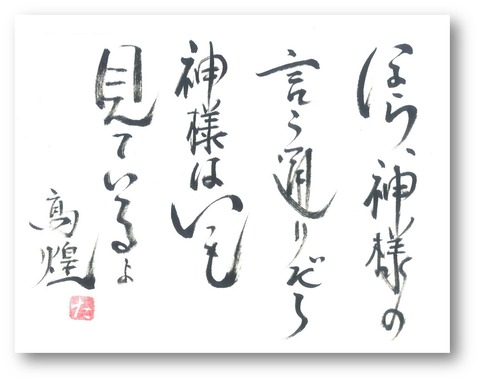 ほら、神様の
言う通りだろう
神様はいつも
見ているよ
高煌
た